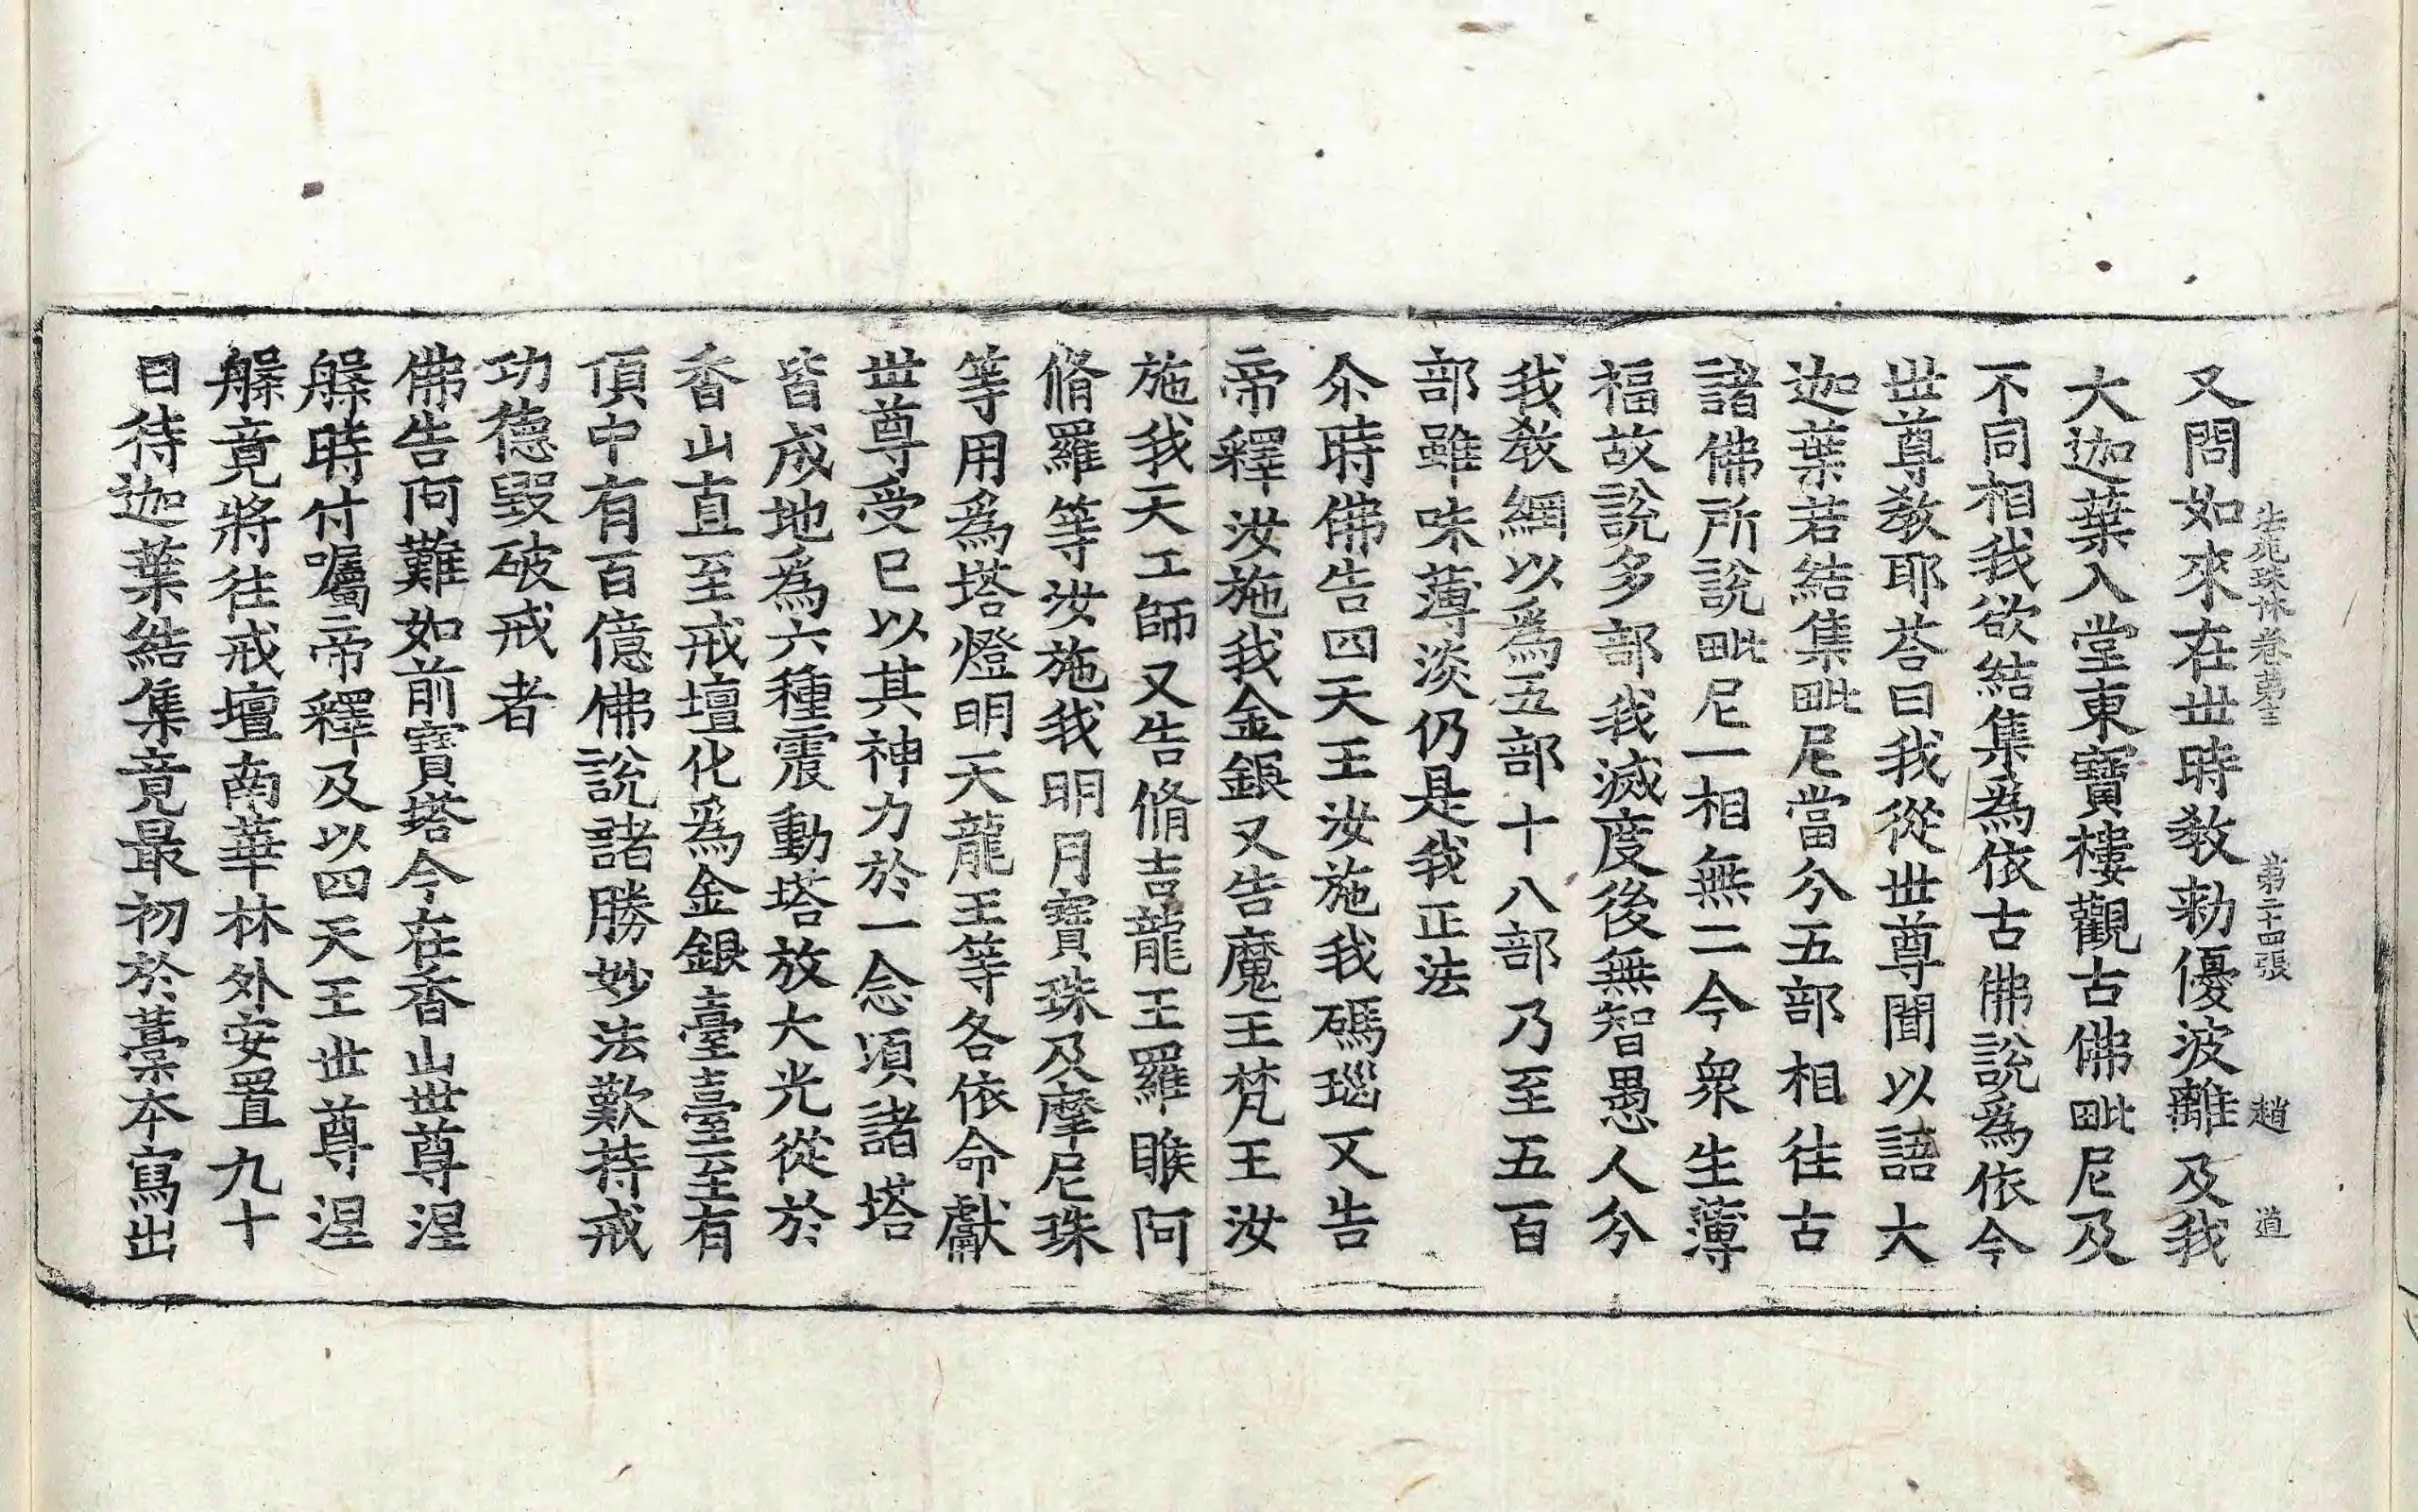 法苑珠林卷第十二 第二十四張 趙 道
又問如來在世時教勑優波離及我
大迦葉入堂東寶樓觀古佛毗尼及
不同相我欲結集為依古佛說為依今
世尊教耶荅曰我從世尊聞以語大
迦葉若結集毗尼當分五部相往古
諸佛所說毗尼一相無二今衆生薄
福故說多部我滅度後無智愚人分
我教網以為五部十八部乃至五百
部雖味薄淡仍是我正法
尒時佛告四天王汝施我碼瑙又告
帝釋汝施我金銀又告魔王梵王汝
施我天工師又告脩吉龍王羅睺阿
脩羅等汝施我明月寶珠及摩尼珠
等用為塔燈明天龍王等各依命獻
世尊受已以其神力於一念頃諸塔
皆成地為六種震動塔放大光從於
香山直至戒壇化為金銀臺臺至有
頂中有百億佛說諸勝妙法歎持戒
功德毀破戒者
佛告阿難如前寶塔今在香山世尊涅
槃時付囑帝釋及以四天王世尊涅
槃竟將往戒壇南華林外安置九十
日待迦葉結集竟最初於藁本寫出